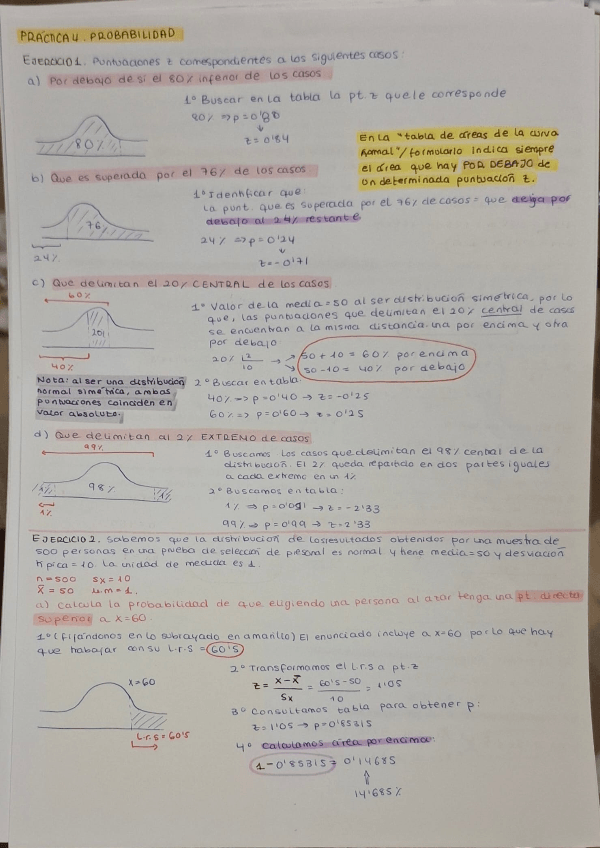 PRÁCTICA 4. PROBABILIDAD
EJERCICIO 1. Puntuaciones z correspondientes a los siguientes casos:
a) Por debajo de si el 80% inferior de los casos
1º Buscar en la tabla la pt. z que le corresponde
80% ⇒ p = 0'80
↓
z = 0'84
80%
En la "tabla de áreas de la curva
normal"/formulario indica siempre
el área que hay POR DEBAJO de
un determinada puntuación z.
b) Que es superada por el 76% de los casos
1º Identificar que:
La punt. que es superada por el 76% de casos = que deja por
debajo al 24% restante
24% ⇒ p = 0'24
↓
z = -0'71
76
24%
c) Que delimitan el 20% CENTRAL de los casos
60%
20%
40%
1º Valor de la media = 50 al ser distribución simétrica, por lo
que, las puntuaciones que delimitan el 20% central de casos
se encuentran a la misma distancia una por encima y otra
por debajo:
20% |2
10
50 + 10 = 60% por encima
50 - 10 = 40% por debajo
Nota: al ser una distribución
normal simétrica, ambas
puntuaciones coinciden en
valor absoluto.
2º Buscar en tabla:
40% ⇒ p = 0'40 → z = -0'25
60% ⇒ p = 0'60 → z = 0'25
d) Que delimitan al 2% EXTREMO de casos
99%
1%
98%
1%
1%
1º Buscamos los casos que delimitan el 98% central de la
distribución. El 2% queda repartido en dos partes iguales
a cada extremo en un 1%
2º Buscamos en tabla:
1% ⇒ p = 0'01 → z = -2'33
99% ⇒ p = 0'99 → z = 2'33
EJERCICIO 2. Sabemos que la distribución de los resultados obtenidos por una muestra de
500 personas en una prueba de selección de personal es normal y tiene media = 50 y desviación
típica = 10. La unidad de medida es 1.
n = 500 Sx = 10
x̄ = 50 u.m = 1.
a) Calcula la probabilidad de que eligiendo una persona al azar tenga una pt. directa
superior a x = 60.
1º (fijándonos en lo subrayado en amarillo) El enunciado incluye a x = 60 por lo que hay
que trabajar con su L.r.S = 60'5
x = 60
L.r.s = 60'5
2º Transformamos el L.r.s a pt. z
z = x - x̄ / Sx = 60'5 - 50 / 10 = 1'05
3º Consultamos tabla para obtener p:
z = 1'05 → p = 0'85315
4º Calculamos área por encima:
1 - 0'85315 = 0'14685
⇑
14'685%